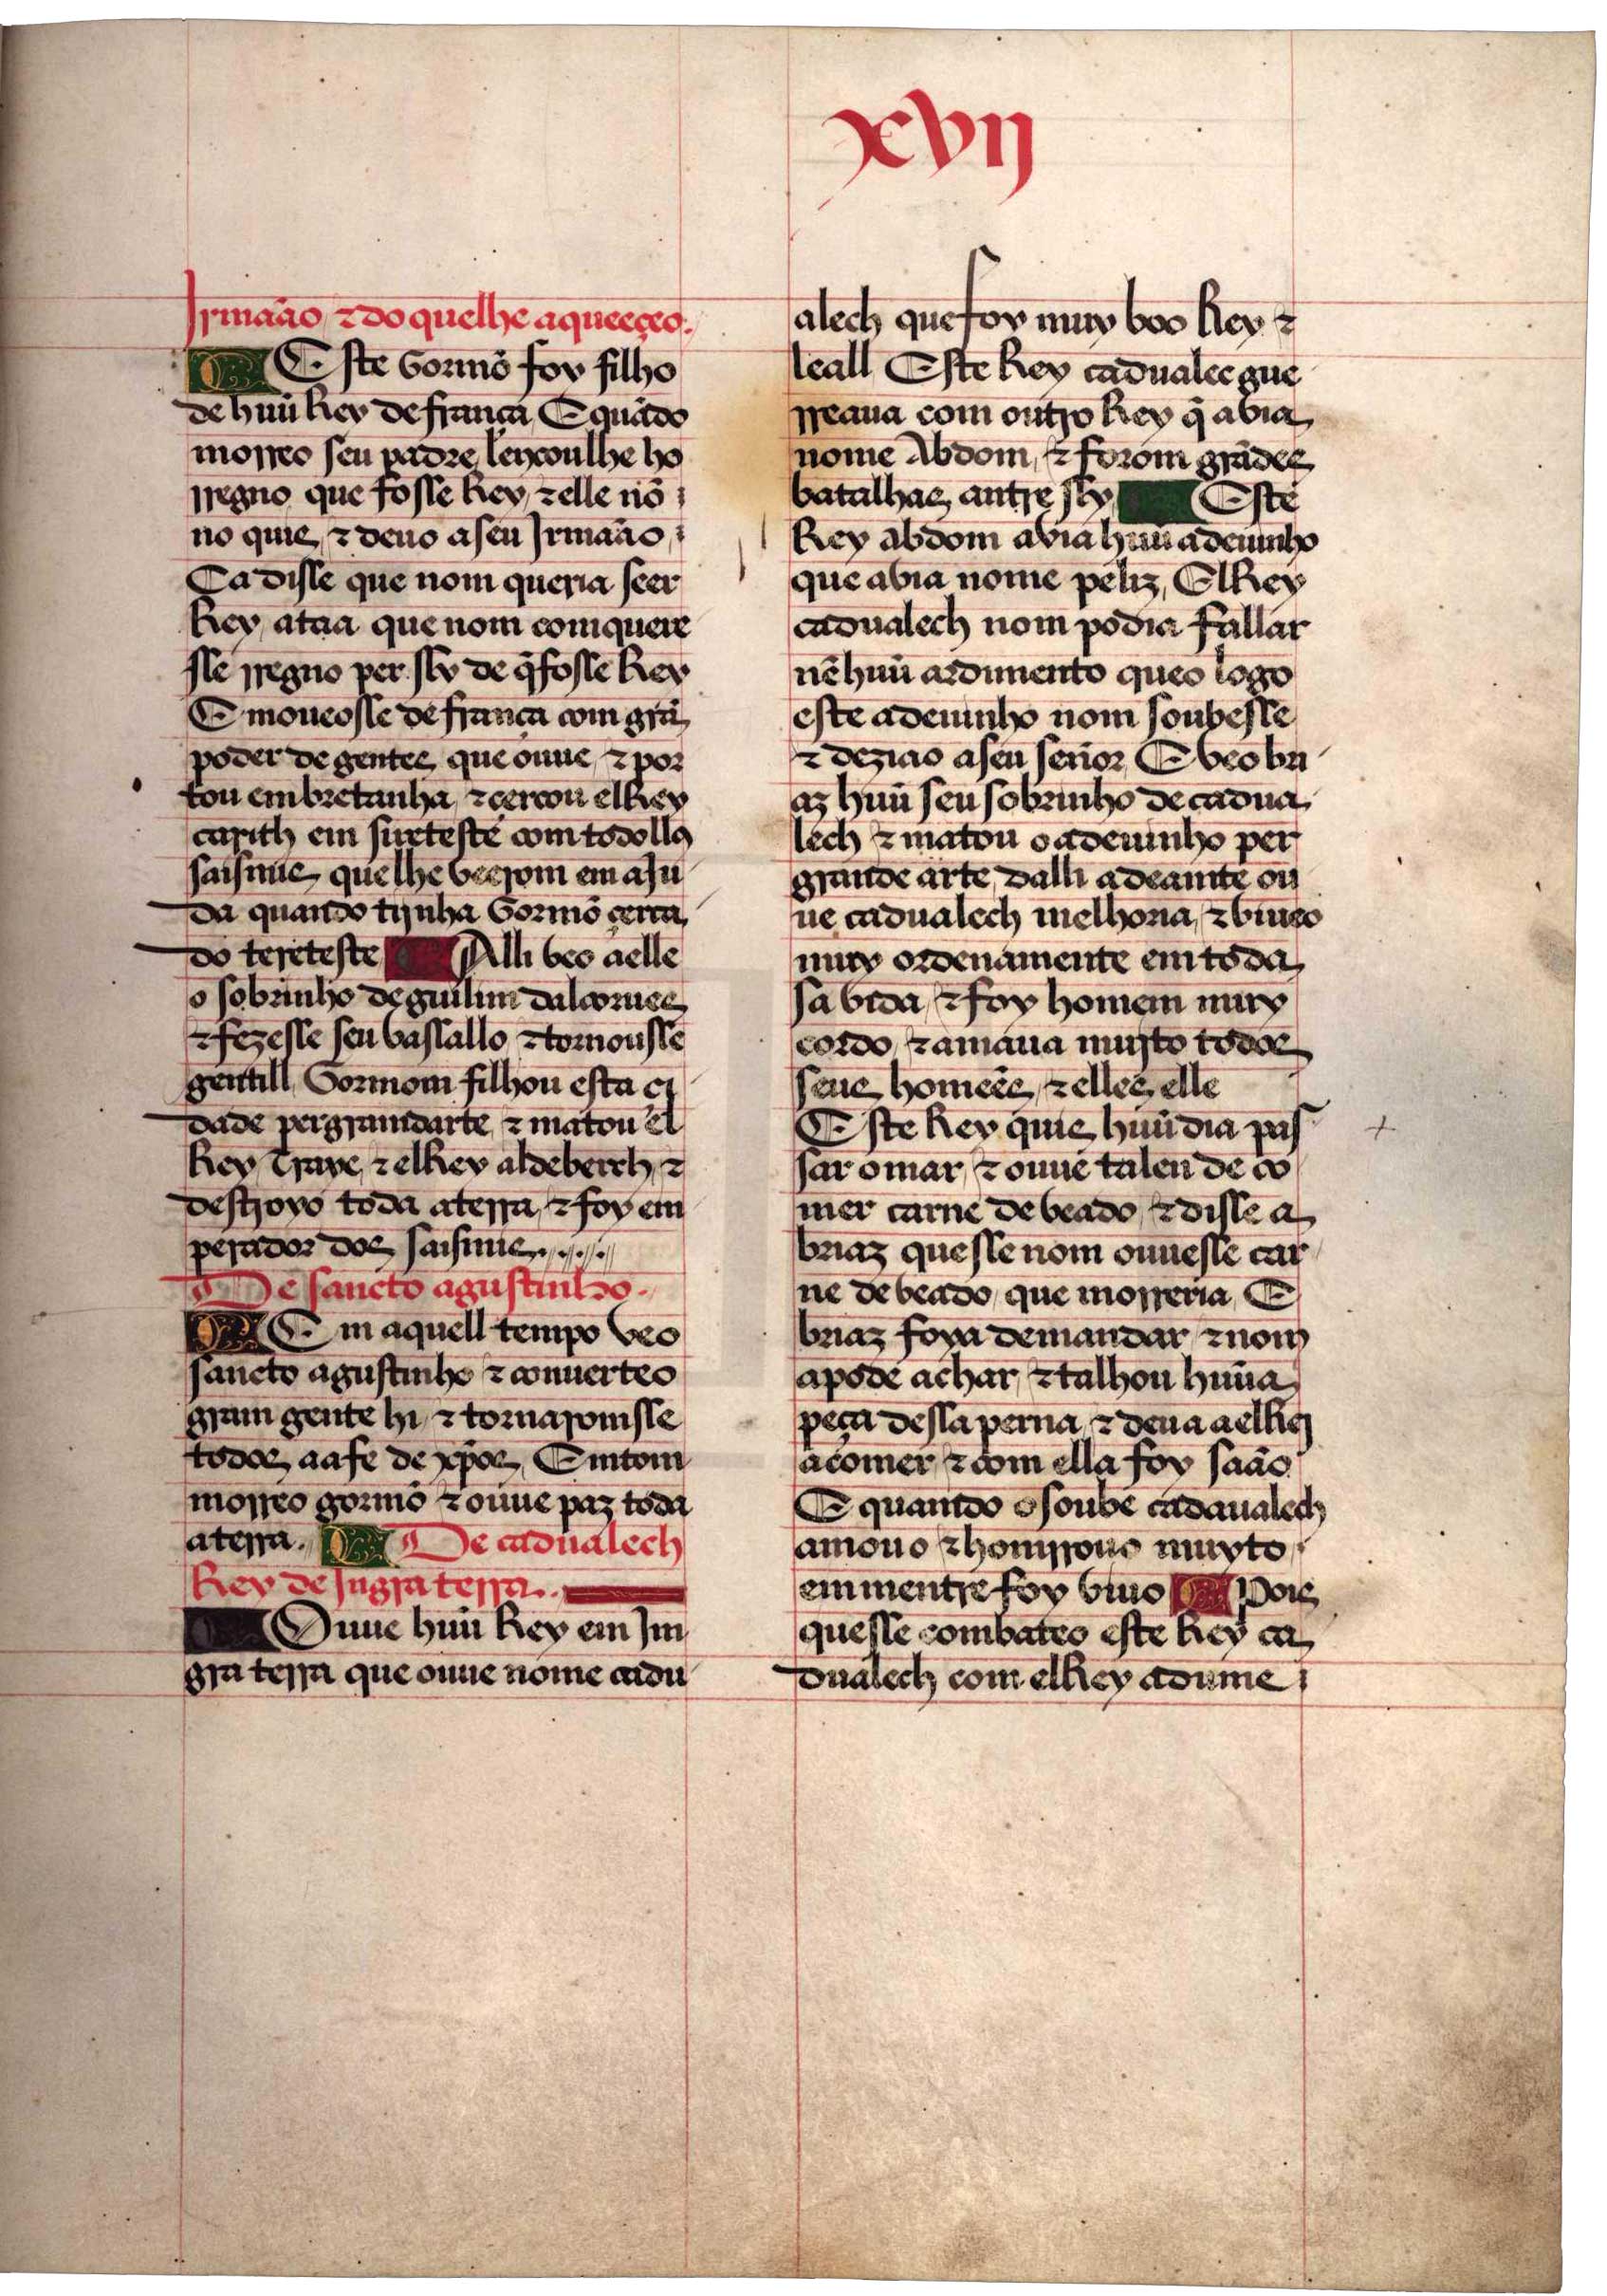 xvij
Irmaão ⁊ do quelhe aqueeçeo.
Este Gormõ foy filho
de huũ Rey de franca E quãdo
morreo seu padre leyxoulhe ho
rregno que fosse Rey ⁊ elle nõ
no quis ⁊ deuo a seu Irmaão
Ca disse que nom queria seer
Rey ataa que nom comquere
sse rregno per sy de q̃ fosse Rey
E moueosse de franca com grã
poder de gentes que ouue ⁊ por
tou em bretanha ⁊ cercou elRey
carith em sireteste com todollos
saisnues que lhe veerom em aJu
da quando tijnha Gormõ cerca
do sereteste Alli veo aelle
o sobrinho de guilim dalcornes
⁊ fezesse seu vassallo ⁊ tornousse
gentill Gormom filhou esta ci
dade per gramdarte ⁊ matou el
Rey Traye ⁊ elRey aldeberth ⁊
destroyo toda a terra ⁊ foy em
perador dos saisnues
De sancto agustinho.
Em aquell tempo veo
sancto agustinho ⁊ conuerteo
gram gente hi ⁊ tornaromsse
todos aa fe de xp̃os Emtom
morreo gormõ ⁊ ouue paz toda
a terra. De cadualech
Rey de Ingra terra.
Ouue huũ Rey em Im
gra terra que ouue nome cadu
alech que foy muy boo Rey ⁊
leall Este Rey cadualec gue
rreaua com outro Rey q̃ abia
nome Abdom ⁊ forom grãdes
batalhas antre sy Este
Rey abdom avia huũ adeuinho
que abia nome peliz ElRey
cadualech nom podia fallar
nẽ huũ ardimento queo logo
este adeuinho nom soubesse
⁊ deziao a seu senor E veo bri
az huũ seu sobrinho de cadua
lech ⁊ matou o adeuinho per
grande arte dalli adeamte ou
ue cadualech melhoria ⁊ viueo
muy ordenamente em toda
sa vida ⁊ foy homem muy
cordo ⁊ amaua muyto todos
seus homeẽs ⁊ elles elle
Este Rey quis huũ dia pas
sar o mar ⁊ ouue talen de co
mer carne de veado ⁊ disse a
briaz que sse nom ouuesse car
ne de veado que morreria E
briaz foya demandar ⁊ nom
a pode achar ⁊ talhou huũa
peça dessa perna ⁊ deua a elRey
a comer ⁊ com ella foy saão
E quando o soube cadaualech
amouo ⁊ homrrouo muyto
em mentre foy viuo Pois
que sse combateo este Rey ca
dualech com elRey adume